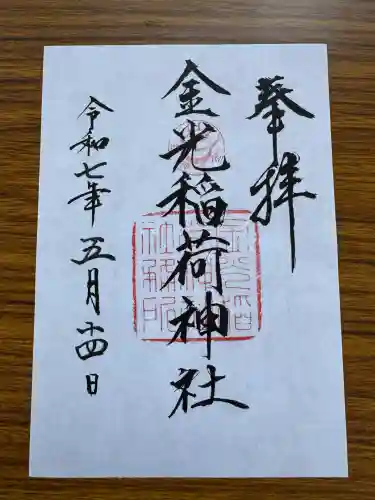 奉拝
金光稲荷神社
令和七年五月十四日